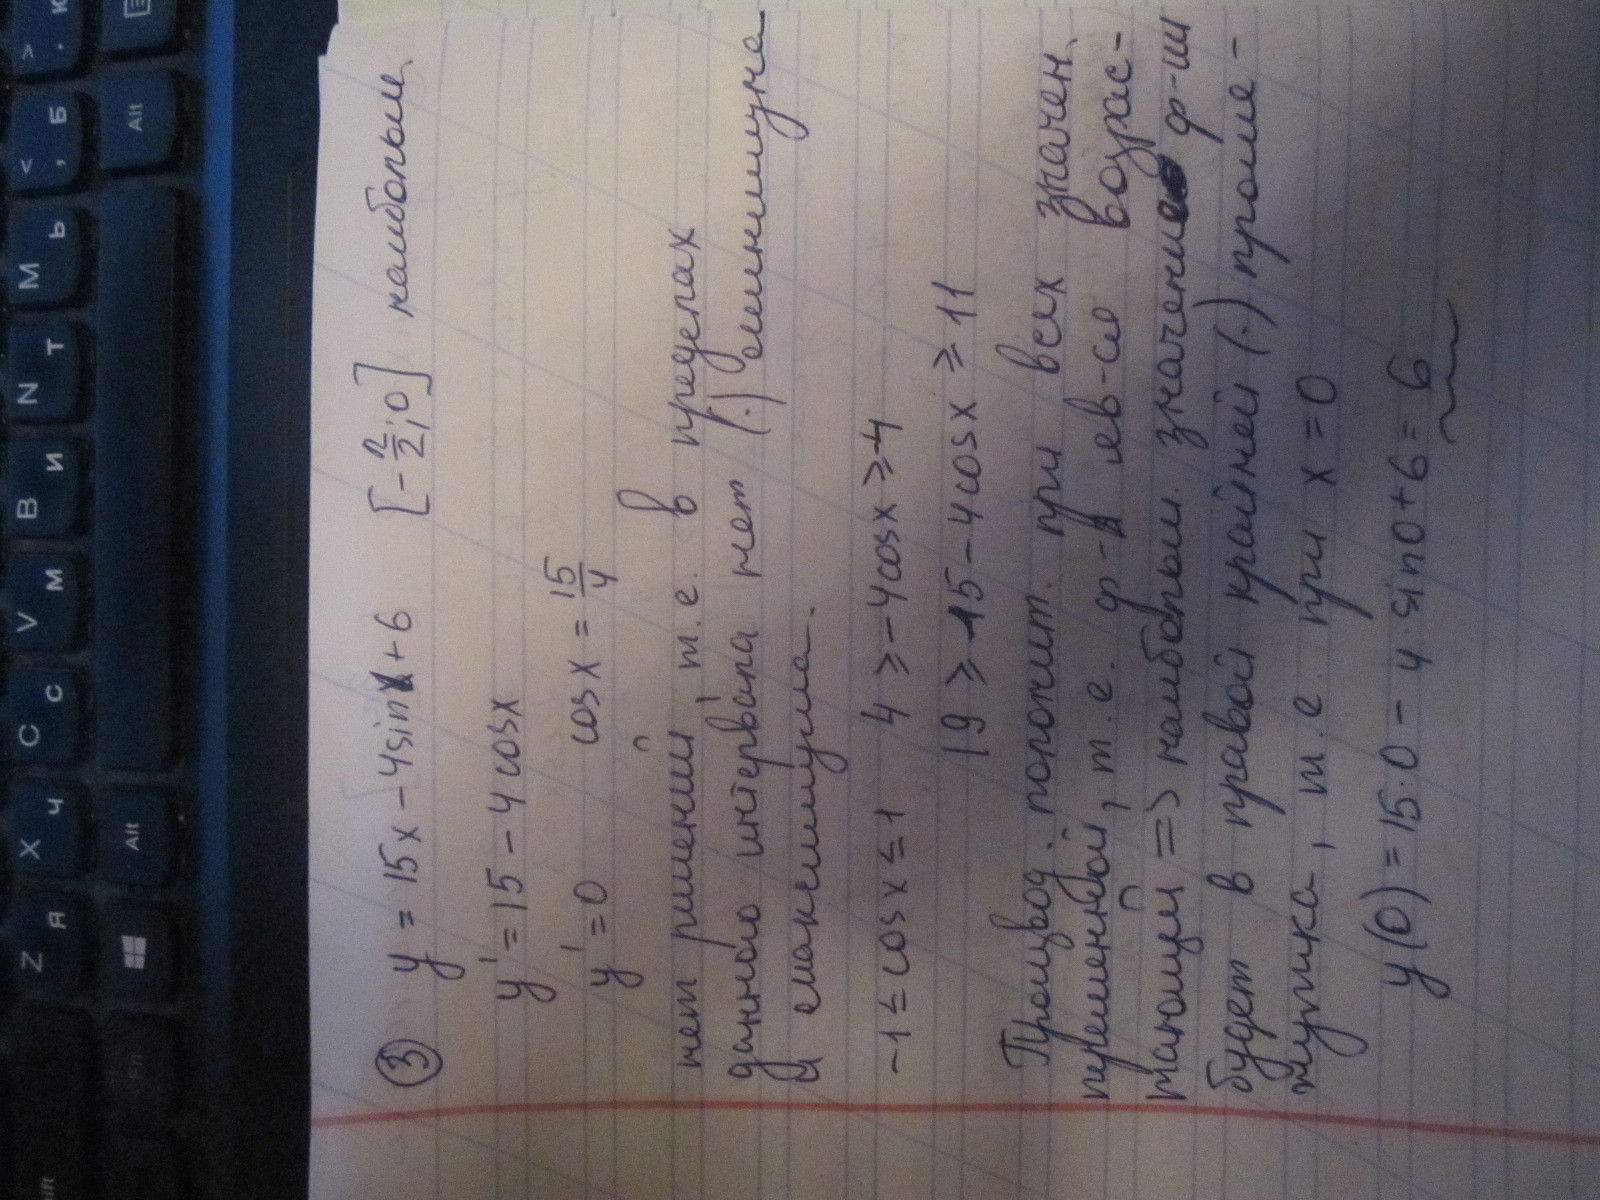 ③ y = 15x - 4sinx + 6 [-π/2; 0] наибольш.
y' = 15 - 4cosx
y' = 0 cosx = 15/4
нет решений, т.е. в пределах
данного интервала нет (·) минимума
и максимума.
-1 ≤ cosx ≤ 1 4 ≥ -4cosx ≥ -4
19 ≥ 15 - 4cosx ≥ 11
Производ. положит. при всех значен.
переменной, т.е. ф-я яв-ся возрас-
тающей => наибольш. значение ф-ии
будет в правой крайней (·) проме-
жутка, т.е. при x = 0
y(0) = 15·0 - 4·sin0 + 6 = 6
Z Я
X Ч
C С
V М
B И
N Т
M Ь
< , Б
> . Ю
Alt
Alt
Fn